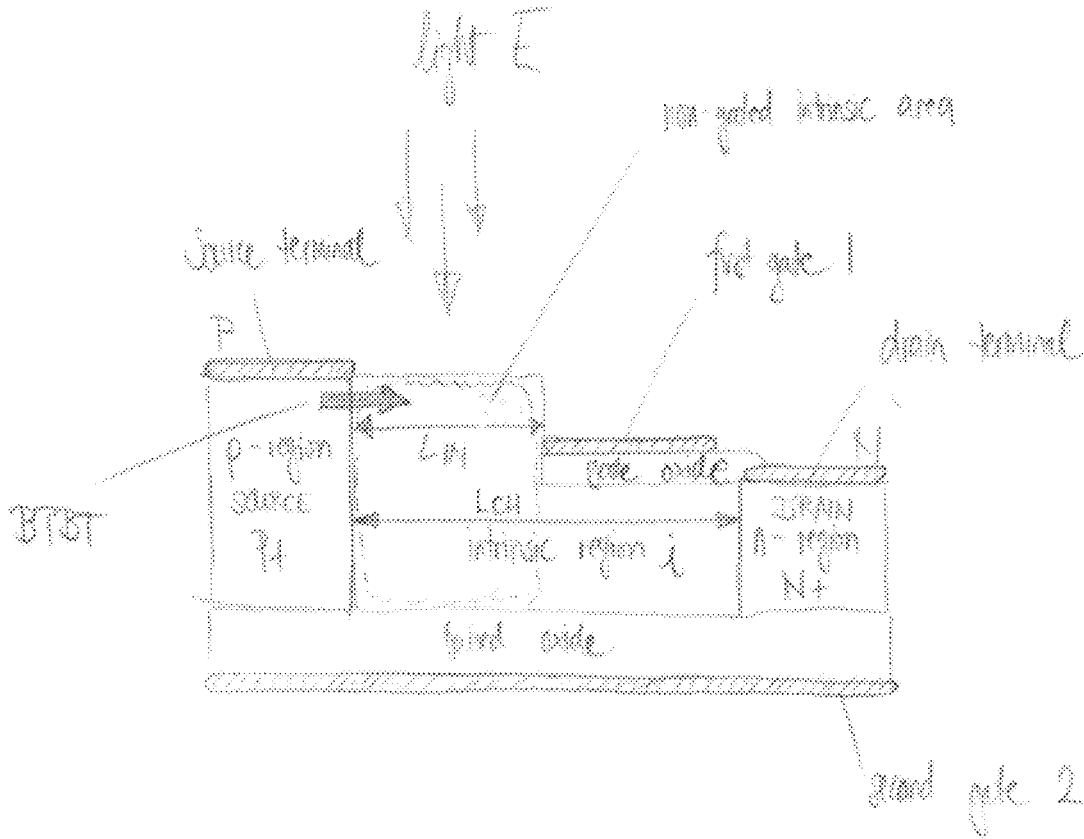 light E
non-gated intrinsic area
source terminal
first gate 1
P
drain terminal
N
p-region
SOURCE
P+
BTBT
gate oxide
LCH
intrinsic region i
DRAIN
n-region
N+
buried oxide
second gate 2